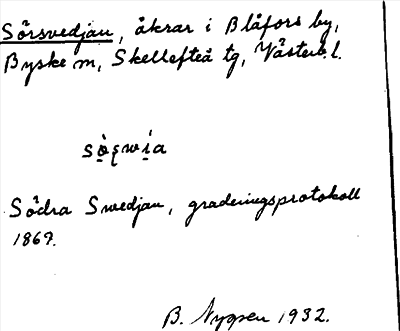 Sörsvedjan, åkrar i Blåfors by,
Byske sn, Skellefteå tg, Västerb. l.
Södra Swedjan, graderingsprotokoll
1869.
B. 1932.